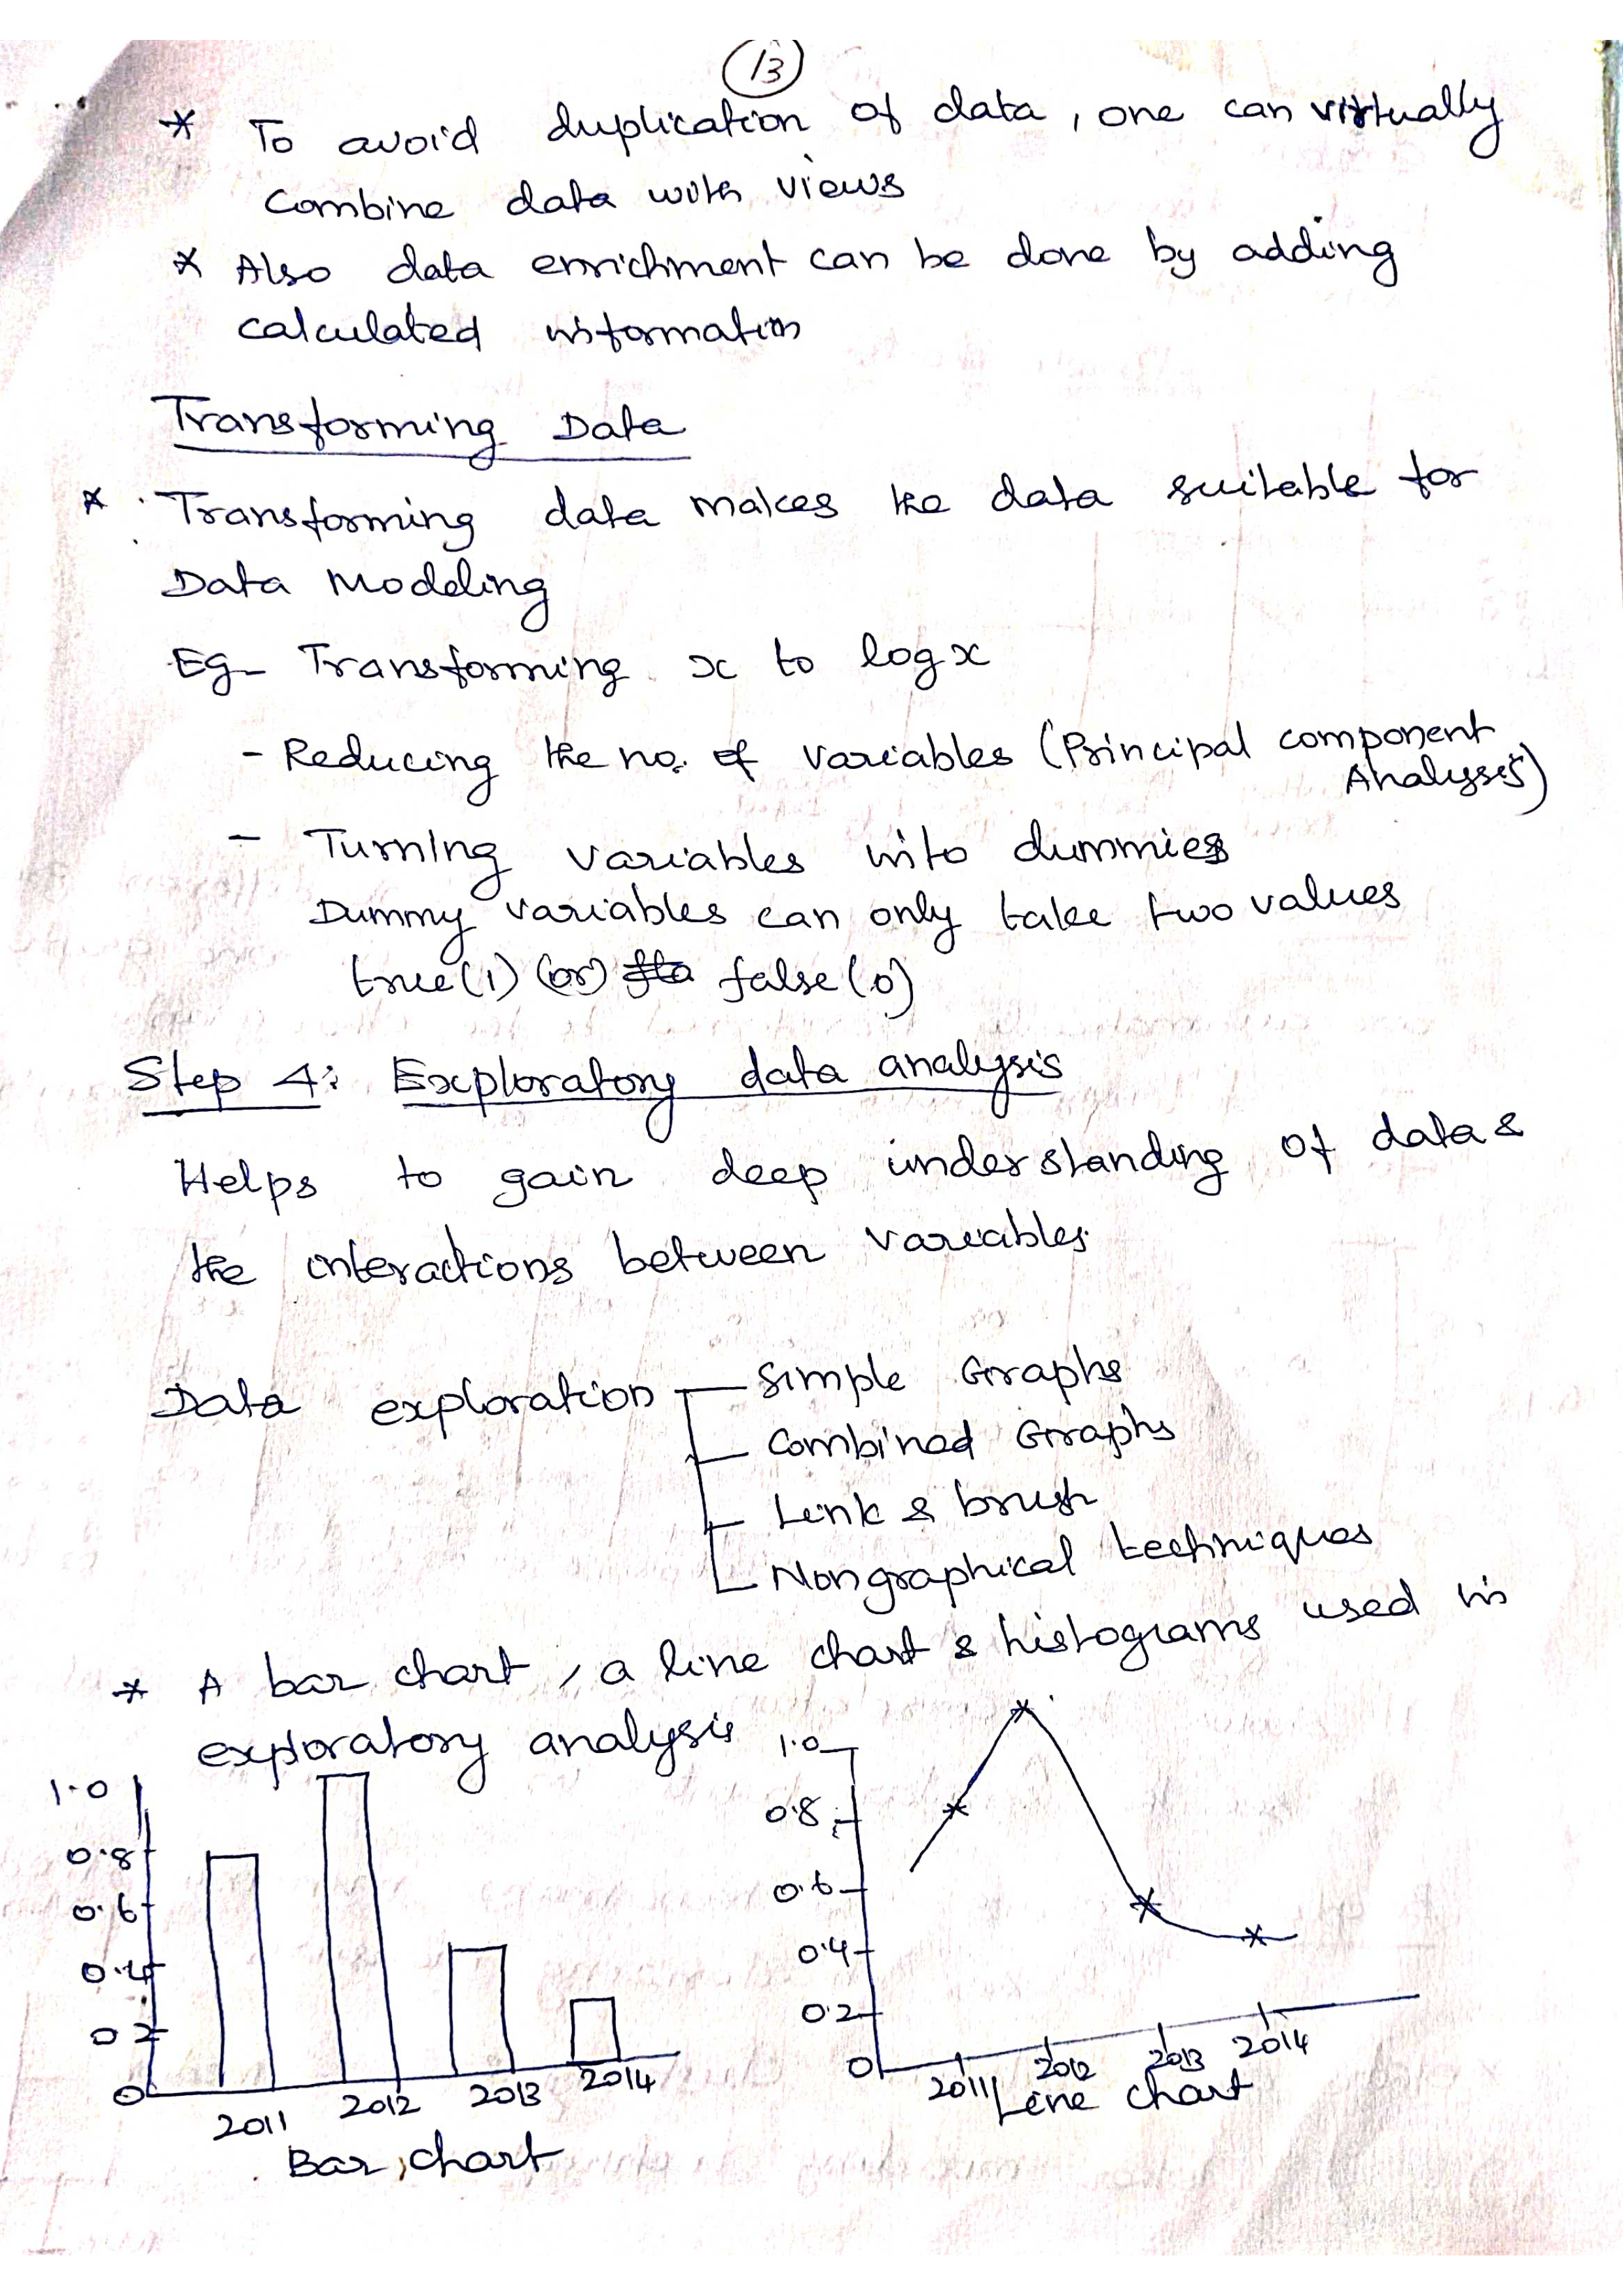 13
* To avoid duplication of data, one can virtually
combine data with views
* Also data enrichment can be done by adding
calculated information
Transforming Data
* Transforming data makes the data suitable for
Data Modeling
Eg- Transforming x to log x
- Reducing the no. of variables (Principal component
Analysis)
- Turning variables into dummies
Dummy variables can only take two values
true(1) (or) false(0)
Step 4: Exploratory data analysis
Helps to gain deep understanding of data &
the interactions between variables.
Data exploration - Simple Graphs
- Combined Graphs
- Link & brush
- Nongraphical techniques
* A bar chart, a line chart & histograms used in
exploratory analysis
1.0
0.8
0.6
0.4
0.2
0
2011 2012 2013 2014
Bar chart
1.0
0.8
0.6
0.4
0.2
0
2011 2012 2013 2014
Line chart